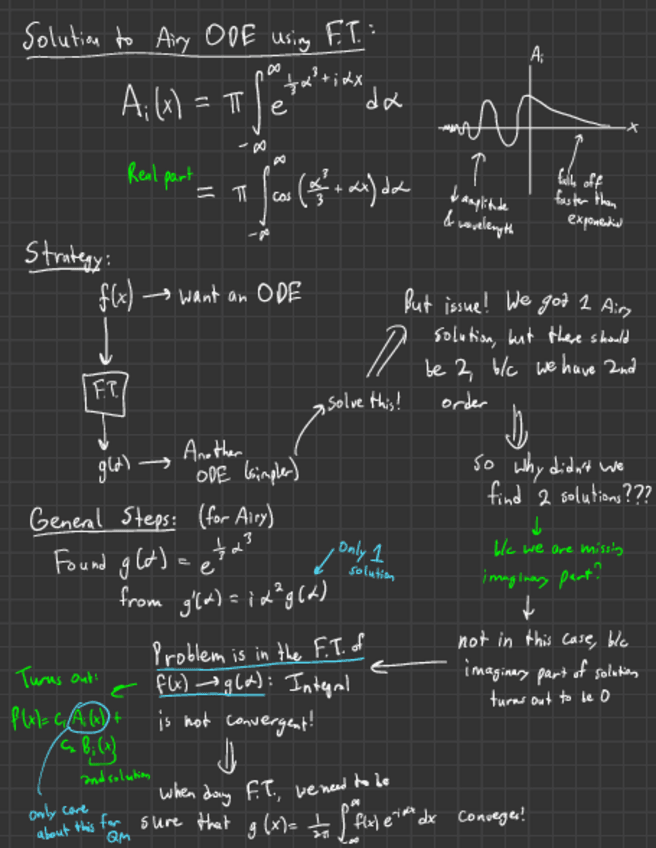 Solution to Airy ODE using F.T.:
A_i(x) = π ∫_{-∞}^{∞} e^{\frac{1}{3}α³ + iαx} dα
Real part = π ∫_{-∞}^{∞} cos (\frac{α³}{3} + αx) dα
A_i
x
↓ amplitude
& wavelength
falls off
faster than
exponential
Strategy:
f(x) → want an ODE
F.T.
g(α) → Another
ODE (simpler)
solve this!
But issue! We got 1 Airy
solution, but there should
be 2, b/c we have 2nd
order
So why didn't we
find 2 solutions???
b/c we are missing
imaginary part?
not in this case, b/c
imaginary part of solution
turns out to be 0
General Steps: (for Airy)
Found g(α) = e^{\frac{1}{3}α³}
from g'(α) = i α² g(α)
Only 1
solution
Problem is in the F.T. of
f(x) → g(α): Integral
is not convergent!
Turns out:
f(x) = c₁ A_i(x) +
c₂ B_i(x)
2nd solution
only care
about this for
QM
when doing F.T., we need to be
sure that g(x) = \frac{1}{2π} ∫_{-∞}^{∞} f(x) e^{-iαx} dx converges!